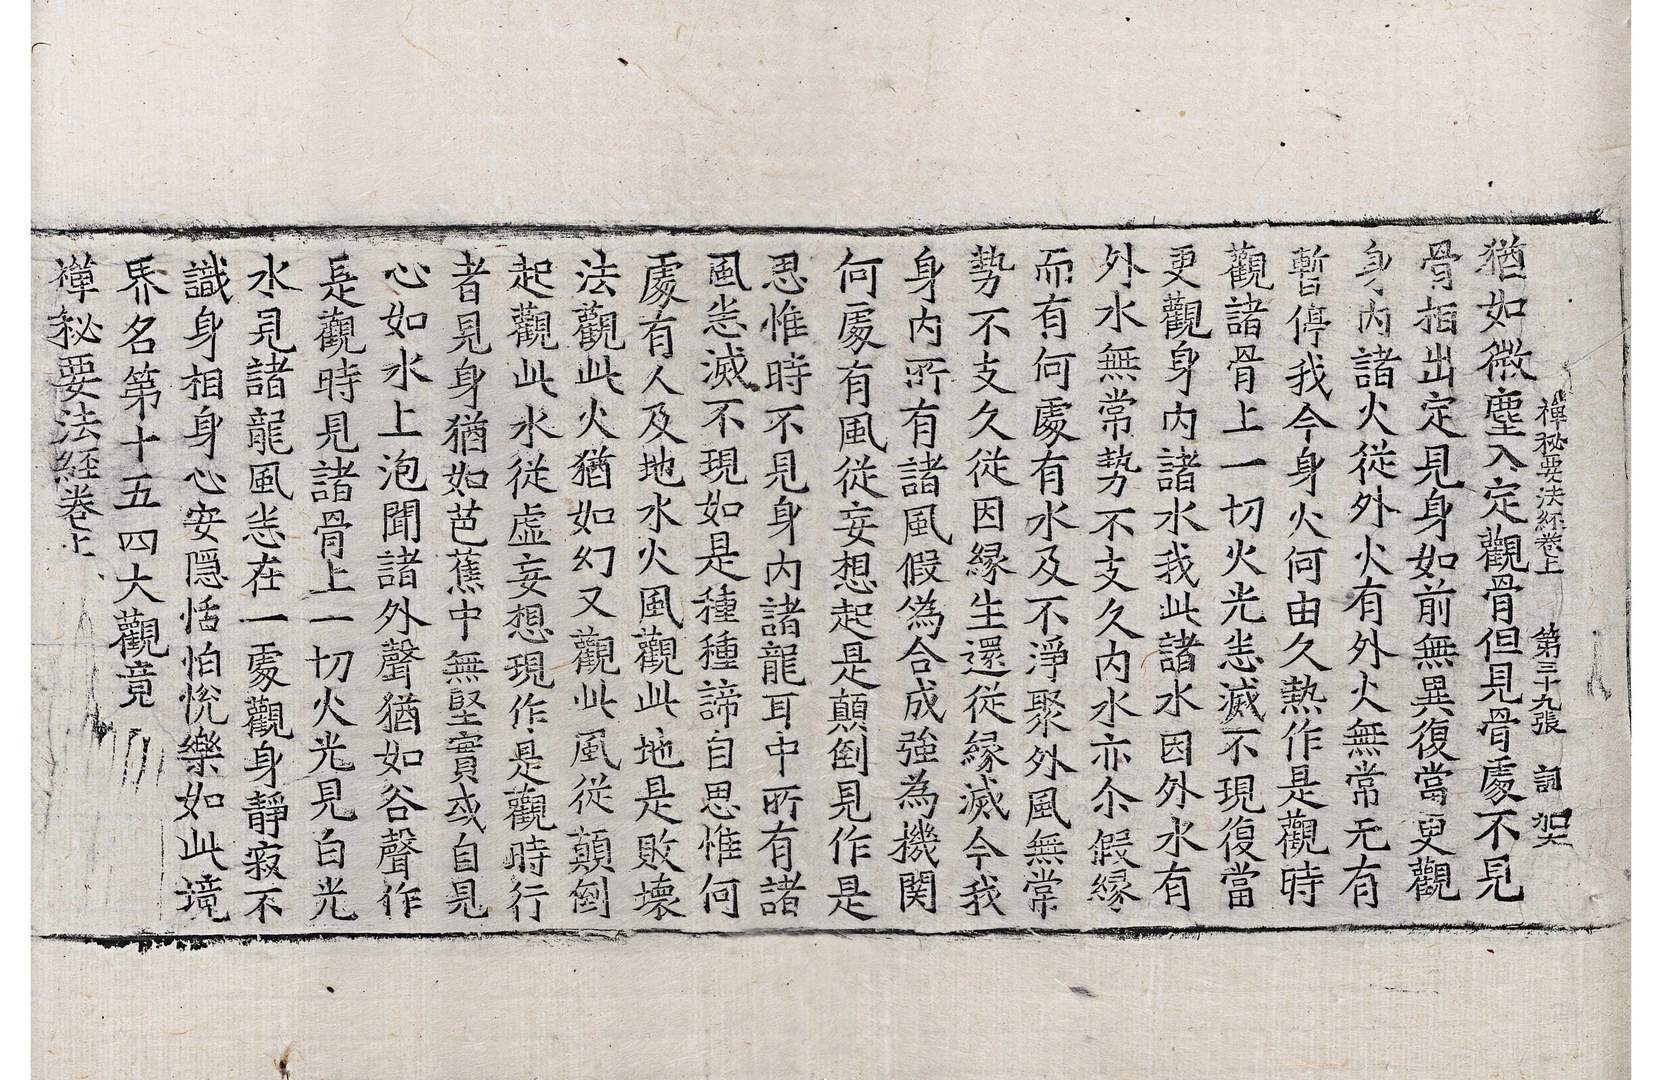 禪秘要法經卷上 第三十九張 詞 架
猶如微塵入定觀骨但見骨處不見
骨相出定見身如前無異復當更觀
身內諸火從外火有外火無常无有
暫停我今身火何由久熱作是觀時
觀諸骨上一切火光悉滅不現復當
更觀身內諸水我此諸水因外水有
外水無常勢不支久內水亦尒假緣
而有何處有水及不淨聚外風無常
勢不支久從因緣生還從緣滅今我
身內所有諸風假偽合成強為機関
何處有風從妄想起是顛倒見作是
思惟時不見身內諸龍耳中所有諸
風悉滅不現如是種種諦自思惟何
處有人及地水火風觀此地是敗壞
法觀此火猶如幻又觀此風從顛倒
起觀此水從虛妄想現作是觀時行
者見身猶如芭蕉中無堅實或自見
心如水上泡聞諸外聲猶如谷聲作
是觀時見諸骨上一切火光見白光
水見諸龍風悉在一處觀身靜寂不
識身相身心安隱恬怕悅樂如此境
界名第十五四大觀竟
禪秘要法經卷上